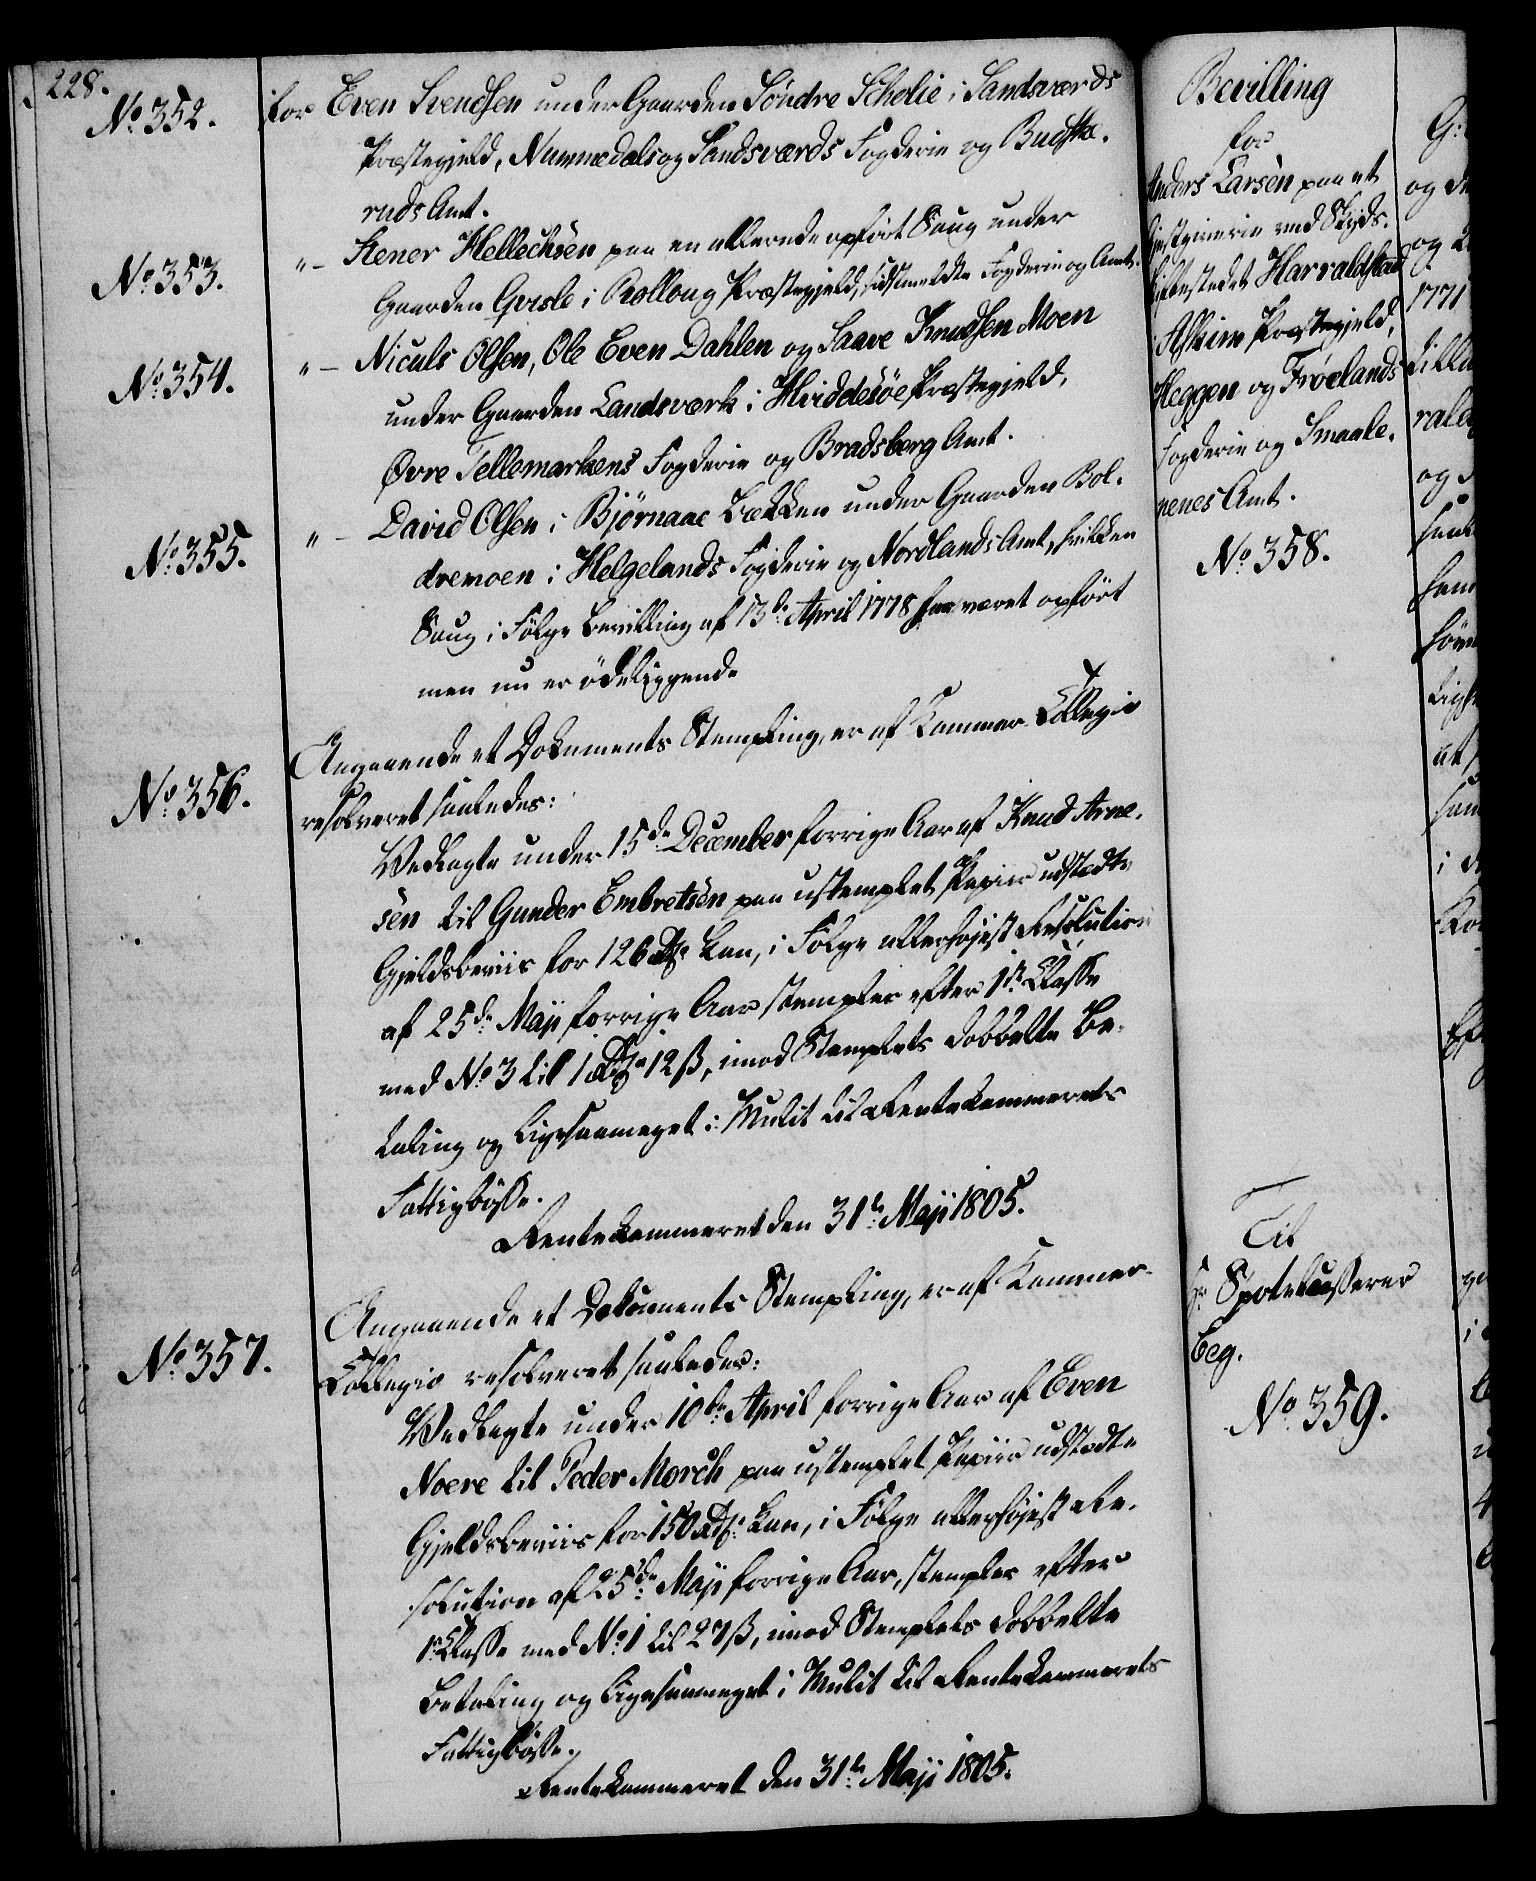 228.
No. 352.
for Even Svendsen under Gaarden Söndre Scholie i Sandsværds
Præstegjeld, Nummedals og Sandsværds Fogderie og Budske-
ruds Amt.
No. 353.
" - Stener Hellechsen paa en allerede opfört Saug under
Gaarden Gvisle i Rolloug Præstegjeld, sidstmeldte Fogderie og Amt.
No. 354.
" - Niculs Olsen, Ole Even Dahlen og Saave Knudsen Moen
under Gaarden Landsværk i Hviddesöe Præstegjeld,
Øvre Tellemarkens Fogderie og Bradsberg Amt.
No. 355.
" - David Olsen i Björnaae Bækken under Gaarden Bol-
dremoen i Helgelands Fogderie og Nordlands Amt, hvilken
Saug i Fölge Bevilling af 13de April 1778 har været opfört
men nu er ödeliggende
No. 356.
Angaaende et Dokuments Stempling, er af Kammer-Collegio
resolveret saaledes:
Vedlagte under 15de December forrige Aar af Knud Arne-
sen til Gunder Embretsen paa ustemplet Papiir udstædte
Gjeldsbeviis for 126 Rdr. kan, i Fölge allerhöjest Resolution
af 25de Maji forrige Aar stemples efter 1ste Classe
med No. 3 til 1 Rdr. 12 ß, imod Stemplets dobbelte Be-
taling og ligesaameget i Mulct til Rentekammerets
Fattigbösse.
Rentekammeret den 31te Maji 1805.
No. 357.
Angaaende et Dokuments Stempling, er af Kammer-
Collegio resolveret saaledes:
Vedlagte under 10de April forrige Aar af Even
Noere til Peder Morch paa ustemplet Papiir udstædte
Gjeldsbeviis for 150 Rdr. kan, i Fölge allerhöjest Re-
solution af 25de Maji forrige Aar, stemples efter
1ste Classe med No. 1 til 27 ß, imod Stemplets dobbelte
Betaling og ligesaameget i Mulct til Rentekammerets
Fattigbösse.
Rentekammeret den 31te Maji 1805.
Bevilling
for
Anders Larsen paa et
Gjestgiverie ved Skyds-
skiftestedet Harraldstad
Askim Præstegjeld,
Heggen og Fröelands
Fogderie og Smaale-
nenes Amt.
No. 358.
Til
Hr. Sportelcasserer
Beg.
No. 359.